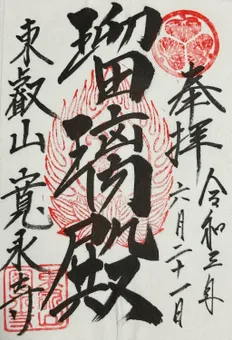 奉拝
令和三年
六月二十一日
瑠璃殿
東叡山
寛永寺